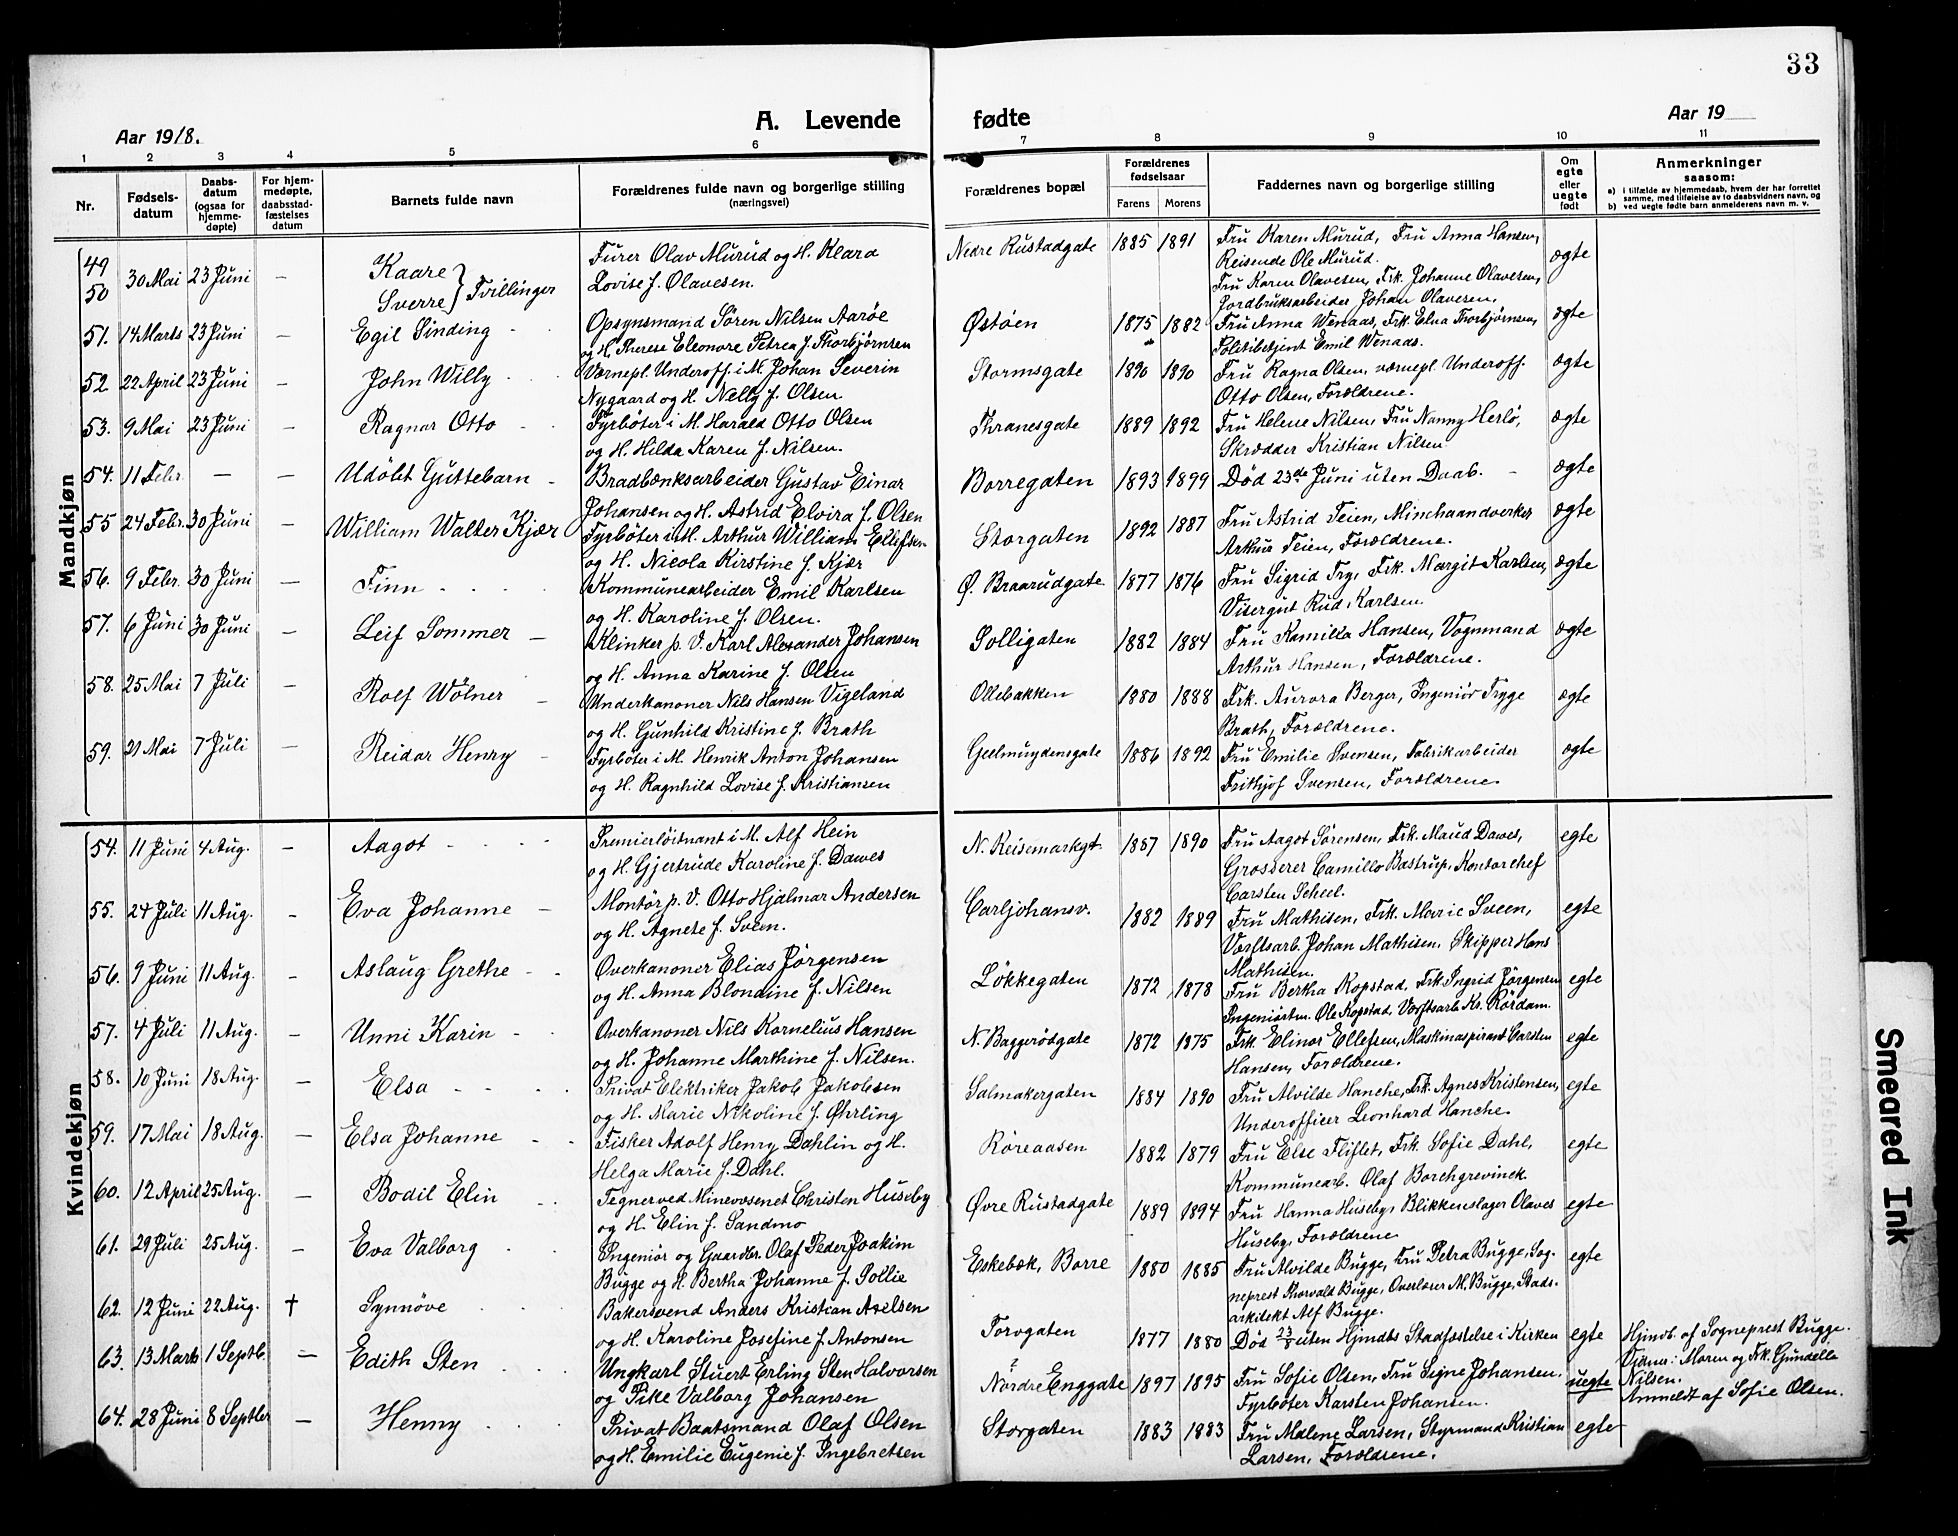 33
Aar 1918.
A. Levende
fødte
Aar 19
1 2 3 4 5 6 7 8 9 10 11
Nr.
Fødsels-
datum
Daabs-
datum
(ogsaa for
hjemme-
døpte)
For hjem-
medøpte,
daabsstad-
fæstelses
datum
Barnets fulde navn
Forældrenes fulde navn og borgerlige stilling
(næringsvei)
Forældrenes bopæl
Forældrenes
fødselsaar
Farens Morens
Faddernes navn og borgerlige stilling
Om
egte
eller
uegte
født
Anmerkninger
saasom:
a) i tilfælde av hjemmedaab, hvem der har forrettet
samme, med tilføielse av to daabsvidners navn, og
b) ved uegte fødte barn anmelderens navn m. v.
Mandkjøn
49
50
30 Mai 23 Juni —
Kaare
Sverre } Tvillinger
Furer Olav Murud og H. Klara
Lovise f. Olavesen.
Nedre Rustadgate 1885 1891
Fru Karen Murud, Fru Anna Hansen,
Reisende Ole Murud.
Fru Karen Olavesen, Frk. Johanne Olavesen,
Jordbruksarbeider Johan Olavesen.
ægte
51. 14 Marts 23 Juni — Egil Sinding
Opsynsmand Sören Nilsen Aaröe
og H. Therese Eleonore Petrea f. Thorbjørnsen
Østøen 1875 1882
Fru Anna Wenaas, Frk. Elna Thorbjørnsen,
Politibetjent Emil Wenaas.
ægte
52 22 April 23 Juni — John Willy
Værnepl. Underoff. i M. Johan Severin
Nygaard og H. Nelly f. Olsen
Stormsgate 1890 1890
Fru Ragna Olsen, værnepl. Underoff.
Otto Olsen, Forældrene.
ægte
53. 9 Mai 23 Juni — Ragnar Otto
Fyrböter i M. Harald Otto Olsen
og H. Hilda Karen f. Nilsen.
Thranesgate 1889 1892
Fru Helene Nilsen, Fru Nanny Herlö,
Skrædder Kristian Nilsen
ægte
54. 11 Febr. — — Udöbt Guttebarn
Bradbænksarbeider Gustav Einar
Johansen og H. Astrid Elvira f. Olsen
Borregaten 1893 1899
Død 23de Juni uten Daab. —
ægte
55 24 Febr. 30 Juni — William Walter Kjær
Fyrböter i M. Arthur William Ellefsen
og H. Nicola Kirstine f. Kjær
Storgaten 1892 1887
Fru Astrid Teien, Minehaandverker
Arthur Teien, Forældrene.
ægte
56. 9 Febr. 30 Juni — Finn
Kommunearbeider Emil Karlsen
og H. Karoline f. Olsen.
Ø. Braarudgate 1877 1876
Fru Sigrid Try, Frk. Margit Karlsen,
Visergut Rud. Karlsen.
ægte
57. 6 Juni 30 Juni — Leif Sommer
Klinker p. V. Karl Alexander Johansen
og H. Anna Karine f. Olsen
Solligaten 1882 1884
Fru Kamilla Hansen, Vognmand
Arthur Hansen, Forældrene.
ægte
58. 25 Mai 7 Juli — Rolf Wölner
Underkanoner Nils Hansen Vigeland
og H. Gunhild Kristine f. Brath
Ollebakken 1880 1888
Frk. Aurora Berger, Ingeniør Trygge
Brath, Forældrene.
ægte
59. 21 Mai 7 Juli — Reidar Henry
Fyrböter i M. Henrik Anton Johansen
og H. Ragnhild Lovise f. Kristiansen
Geelmuydensgate 1886 1892
Fru Emilie Svensen, Fabrikarbeider
Frithjof Svensen, Forældrene.
ægte
Kvindekjøn
54. 11 Juni 4 Aug. — Aagot
Premierlöitnant i M. Alf Hein
og H. Gjertrude Karoline f. Dawes
N. Keisemarkgt. 1887 1890
Fru Aagot Sørensen, Frk. Maud Dawes,
Grosserer Camillo Bastrup, Kontorchef
Carsten Scheel.
egte
55. 24 Juli 11 Aug. — Eva Johanne
Montör p. V. Otto Hjalmar Andersen
og H. Agnete f. Sveen.
Carljohansv. 1882 1889
Fru Mathisen, Frk. Marie Sveen,
Værftsarb. Johan Mathisen, Skipper Hans
Mathisen.
egte
56. 9 Juni 11 Aug. — Aslaug Grethe
Overkanoner Elias Jørgensen
og H. Anna Blondine f. Nilsen
Løkkegaten 1872 1878
Fru Bertha Kopstad, Frk Ingrid Jörgensen
Ingeniørtm. Ole Kopstad, Værftsarb. Kr. Rördam.
egte
57. 4 Juli 11 Aug. — Unni Karin
Overkanoner Nils Kornelius Hansen
og H. Johanne Marthine f. Nilsen.
N. Baggerödgate 1872 1875
Frk. Elinor Ellefsen, Maskinaspirant Carsten
Hansen, Forældrene.
egte
58. 10 Juni 18 Aug. — Elsa
Privat Elektriker Jakob Jakobsen
og H. Marie Nikoline f. Øhrling
Salmakergaten 1884 1890
Fru Alvilde Hanche, Frk. Agnes Kristensen,
Underofficer Leonhard Hanche.
egte
59. 17 Mai 18 Aug. — Elsa Johanne
Fisker Adolf Henry Dahlin og H.
Helga Marie f. Dahl.
Røreaasen 1882 1879
Fru Else Fliflet, Frk. Sofie Dahl,
Kommunearb. Olaf Borchgrevinck
egte
60. 12 April 25 Aug. — Bodil Elin
Tegner ved Minevæsenet Christen Huseby
og H. Elin f. Sandmo
Øvre Rustadgate 1889 1894
Fru Hanna Huseby, Blikkenslager Olaves
Huseby, Forældrene
egte
61. 29 Juli 25 Aug. — Eva Valborg
Ingeniør og Gaardbr. Olaf Peder Joakim
Bugge og H. Bertha Johanne f. Sollie
Eskebæk, Borre 1880 1885
Fru Alvilde Bugge, Fru Petra Bugge, Sog-
neprest Thorvald Bugge, Overlærer M. Bugge, Stads-
arkitekt Alf Bugge.
egte
62. 12 Juni 22 Aug. † Synnöve
Bakersvend Anders Kristian Axelsen
og H. Karoline Josefine f. Antonsen
Torvgaten 1877 1880
Død 23/8 uten Hjmdbs Stadfæstelse i Kirken
egte
Hjmdb. af Sogneprest Bugge.
Vidner: Moren og Frk. Gundella
Nilsen.
63. 13 Marts 1 Septb. — Edith Sten
Ungkarl Stuert Erling Sten Halvorsen
og Pike Valborg Johansen
Nordre Enggate 1897 1895
Fru Sofie Olsen, Fru Signe Johansen.
Fyrböter Karsten Johansen.
uegte
Anmeldt af Sofie Olsen.
64. 28 Juni 8 Septbr — Henny
Privat Baatsmand Olaf Olsen
og H. Emilie Eugenie f. Ingebretsen
Storgaten 1883 1883
Fru Malene Larsen, Styrmand Kristian
Larsen, Forældrene.
egte
Smeared Ink